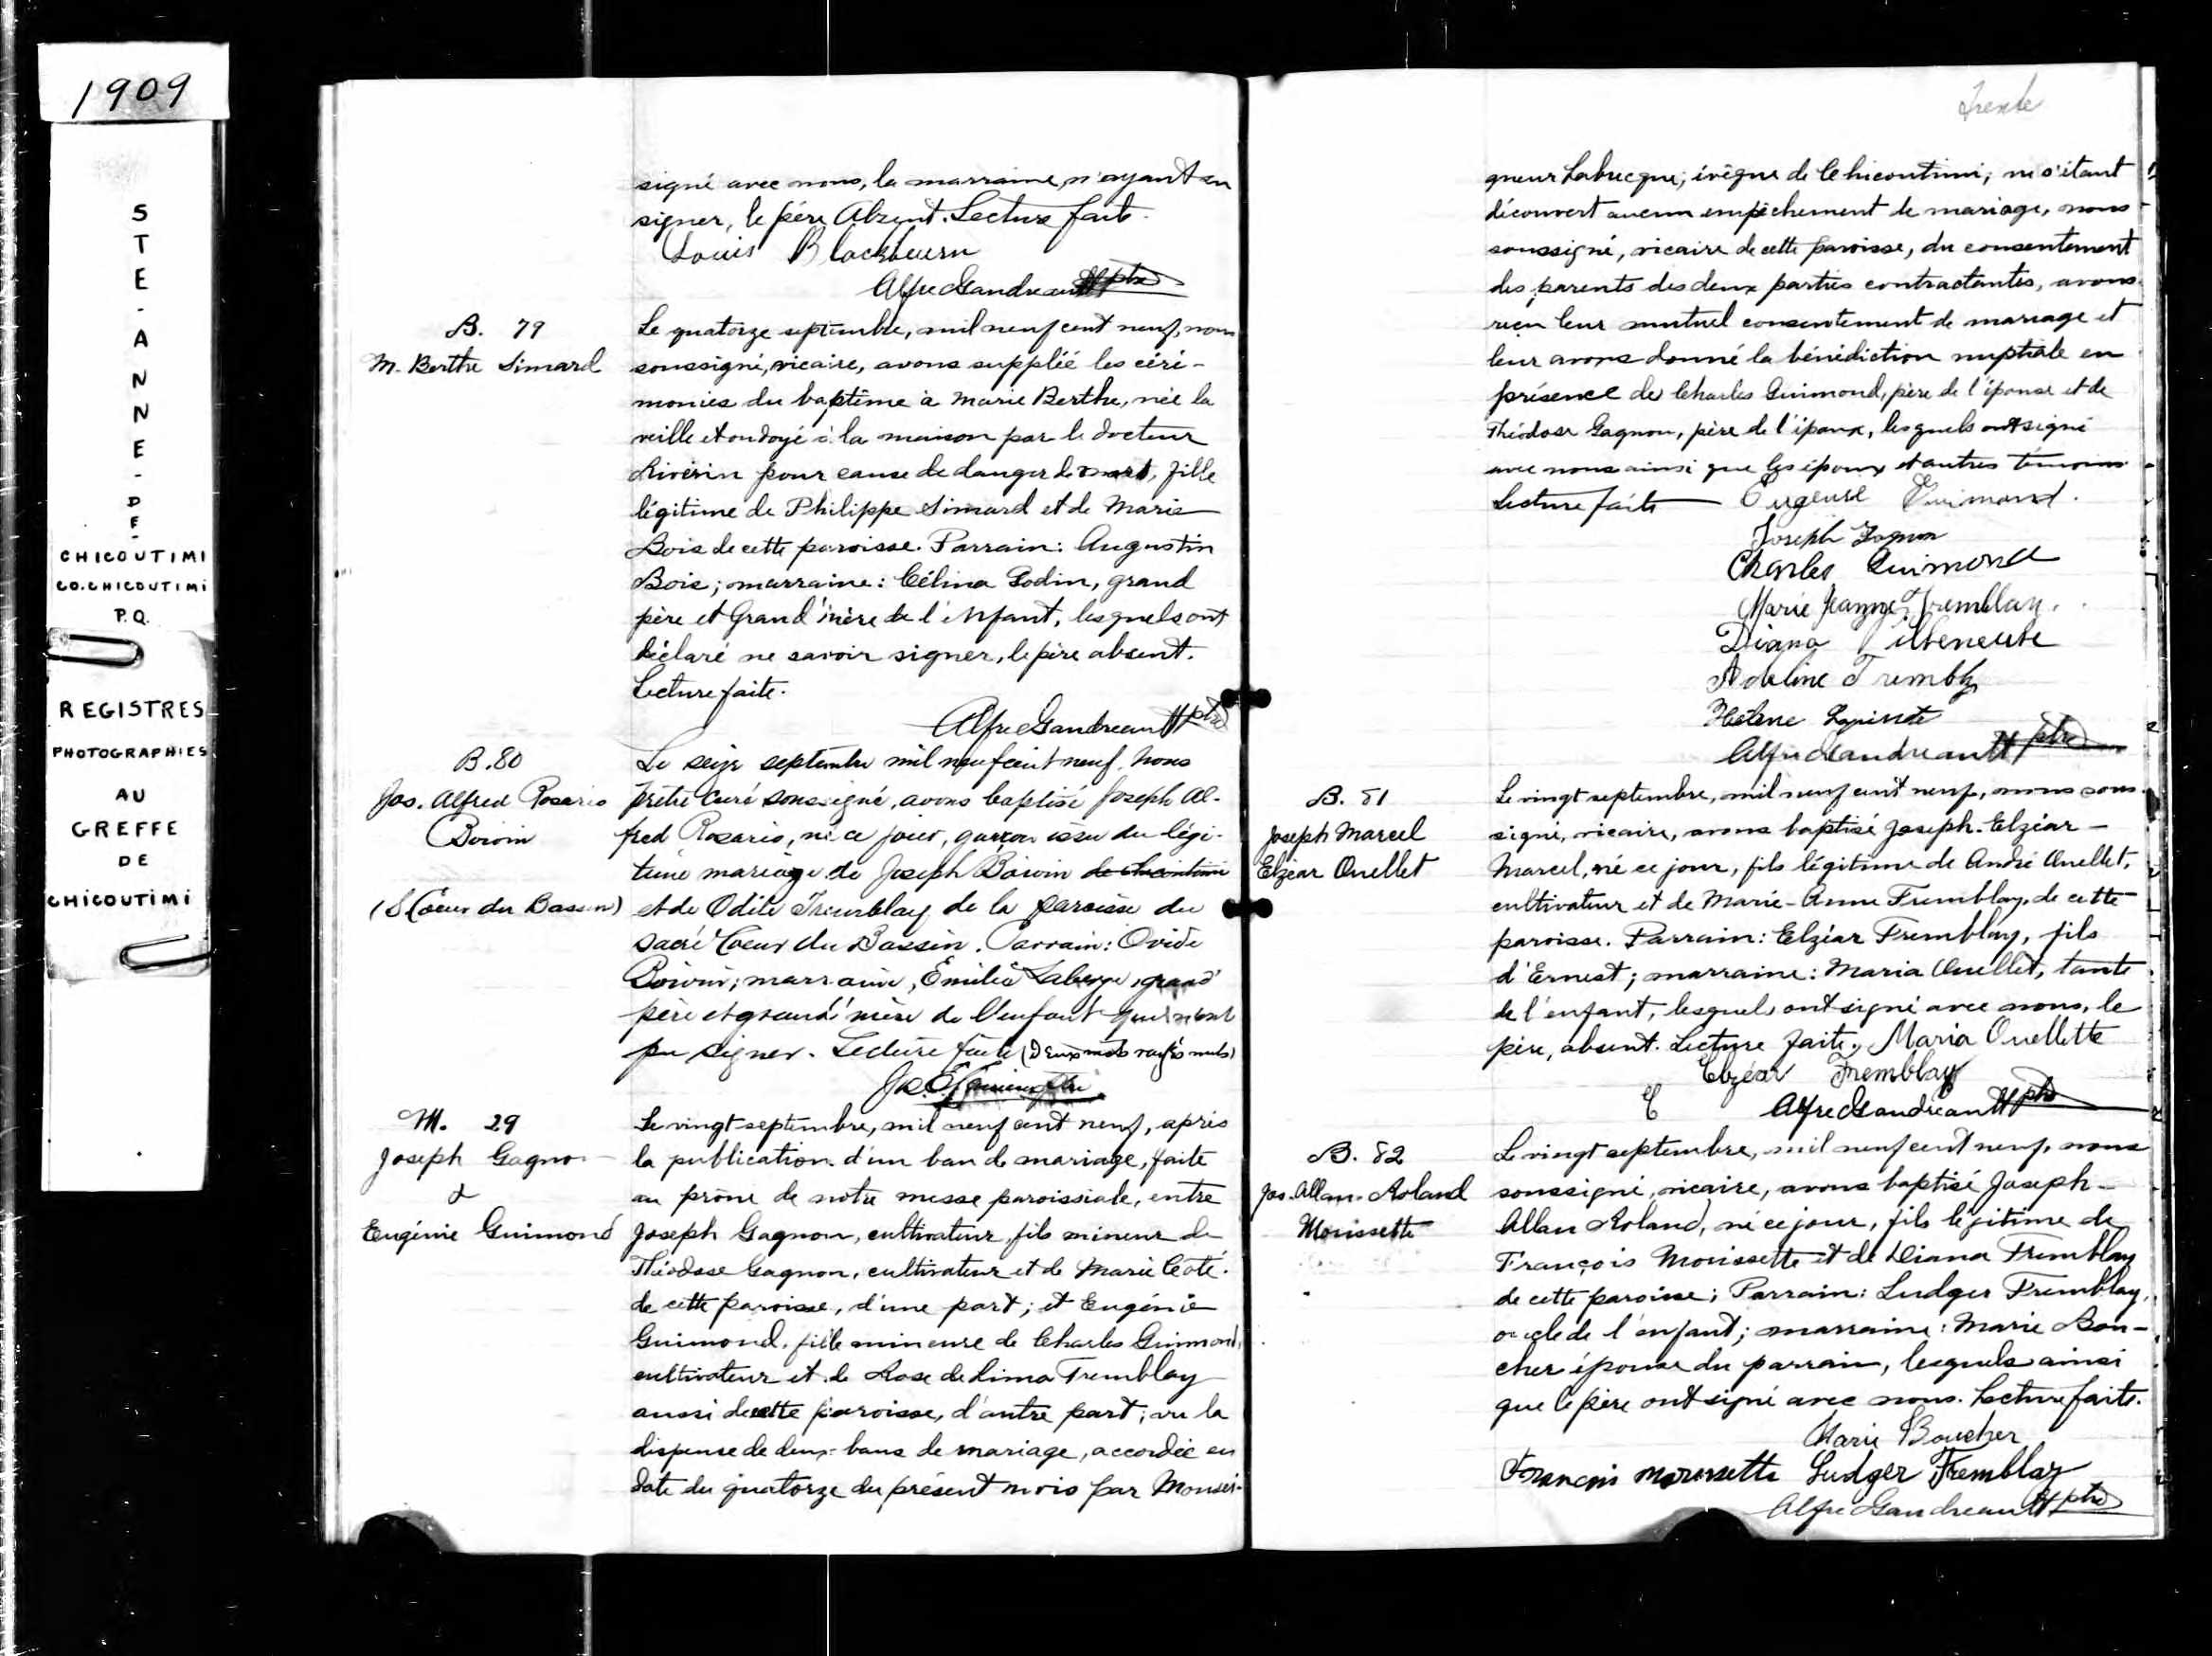 1909
STE-ANNE-DE-
CHICOUTIMI
CO.CHICOUTIMI
P.Q.
REGISTRES
PHOTOGRAPHIES
AU
GREFFE
DE
CHICOUTIMI
signé avec nous, la marraine n'ayant su
signer, le père Absent. Lecture faite.
Louis Blackburn
Alfred Gaudreault ptre
B. 79
M. Berthe Simard
Le quatorze septembre, mil neuf cent neuf, nous
soussigné, vicaire, avons suppléé les céré-
monies du baptême à Marie Berthe, née la
veille et ondoyé à la maison par le docteur
Riverin pour cause de danger de mort, fille
légitime de Philippe Simard et de Marie
Bois de cette paroisse. Parrain: Augustin
Bois; marraine: Célina Godin, grand
père et Grand'mère de l'enfant, lesquels ont
déclaré ne savoir signer, le père absent.
Lecture faite.
Alfred Gaudreault ptre
B. 80
Jos. Alfred Rosario
Boivin
(S Coeur du Bassin)
Le seize septembre mil neuf cent neuf nous
prêtre curé soussigné, avons baptisé Joseph Al-
fred Rosario, né ce jour, garçon issu du légi-
time mariage de Joseph Boivin de Chicoutimi
et de Odile Tremblay de la paroisse du
Sacré Coeur du Bassin. Parrain: Ovide
Boivin; marraine, Emilie Laberge, grand
père et grand'mère de l'enfant qui n'ont
pu signer. Lecture faite (Deux mots rayés nuls)
M. 29
Joseph Gagnon
&
Eugénie Guimond
Le vingt septembre, mil neuf cent neuf, après
la publication d'un ban de mariage, faite
au prône de notre messe paroissiale, entre
Joseph Gagnon, cultivateur, fils mineur de
Théodose Gagnon, cultivateur et de Marie Coté.
de cette paroisse, d'une part; et Eugénie
Guimond, fille mineure de Charles Guimond,
cultivateur et de Rose de Lima Tremblay
aussi de cette paroisse, d'autre part; vu la
dispense de deux bans de mariage, accordée en
date du quatorze du présent mois par Monsei-
Trente
gneur Labrecque, évêque de Chicoutimi; ne s'étant
découvert aucun empêchement de mariage, nous
soussigné, vicaire de cette paroisse, du consentement
des parents des deux parties contractantes, avons
reçu leur mutuel consentement de mariage et
leur avons donné la bénédiction nuptiale en
présence de Charles Guimond, père de l'épouse et de
Théodose Gagnon, père de l'époux, lesquels ont signé
avec nous ainsi que les époux et autres témoins
Lecture faite Eugenie Guimond.
Joseph Gagnon
Charles Guimond
Marie Jeanne Tremblay.
Diana Villeneuve
Adeline Trembly
Hélène Lapointe
Alfred Gaudreault ptre
B. 81
Joseph Marcel
Elzéar Ouellet
Le vingt septembre, mil neuf cent neuf, nous sous
signé, vicaire, avons baptisé Joseph-Elzéar-
Marcel, né ce jour, fils légitime de André Ouellet,
cultivateur et de Marie-Anne Tremblay, de cette
paroisse. Parrain: Elzéar Tremblay, fils
d'Ernest; marraine: Maria Ouellet, tante
de l'enfant, lesquels ont signé avec nous, le
père, absent. Lecture faite. Maria Ouellette
Elzéar Tremblay
Alfred Gaudreault ptre
B. 82
Jos. Allan-Roland
Morissette
Le vingt septembre, mil neuf cent neuf, nous
soussigné, vicaire, avons baptisé Joseph-
Allan Roland, né ce jour, fils légitime de
François Morissette et de Diana Tremblay
de cette paroisse; Parrain: Ludger Tremblay,
oncle de l'enfant; marraine: Marie Bou-
cher épouse du parrain, lesquels ainsi
que le père ont signé avec nous. Lecture faite.
Marie Boucher
Francois morissette Ludger Tremblay
Alfred Gaudreault ptre